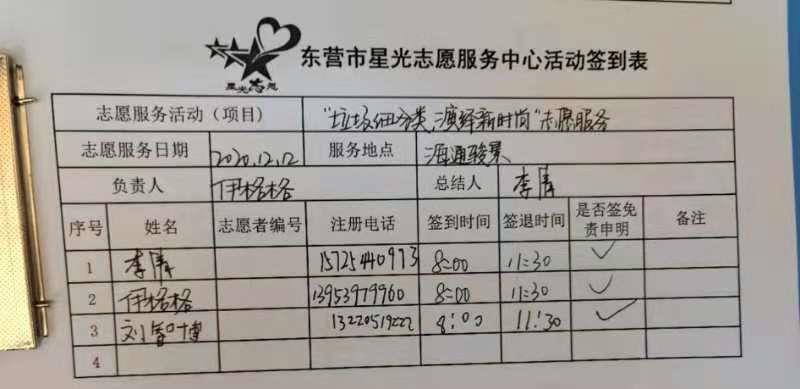 星光志愿
东营市星光志愿服务中心活动签到表
志愿服务活动（项目） "垃圾细分类,演绎新时尚"志愿服务
志愿服务日期 2020.12.12 服务地点 海通骏景
负责人 伊格格 总结人 李涛
序号 姓名 志愿者编号 注册电话 签到时间 签退时间 是否签免责申明 备注
1 李涛 15725440973 8:00 11:30 ✓
2 伊格格 13953979960 8:00 11:30 ✓
3 刘智博 13220519222 8:00 11:30 ✓
4